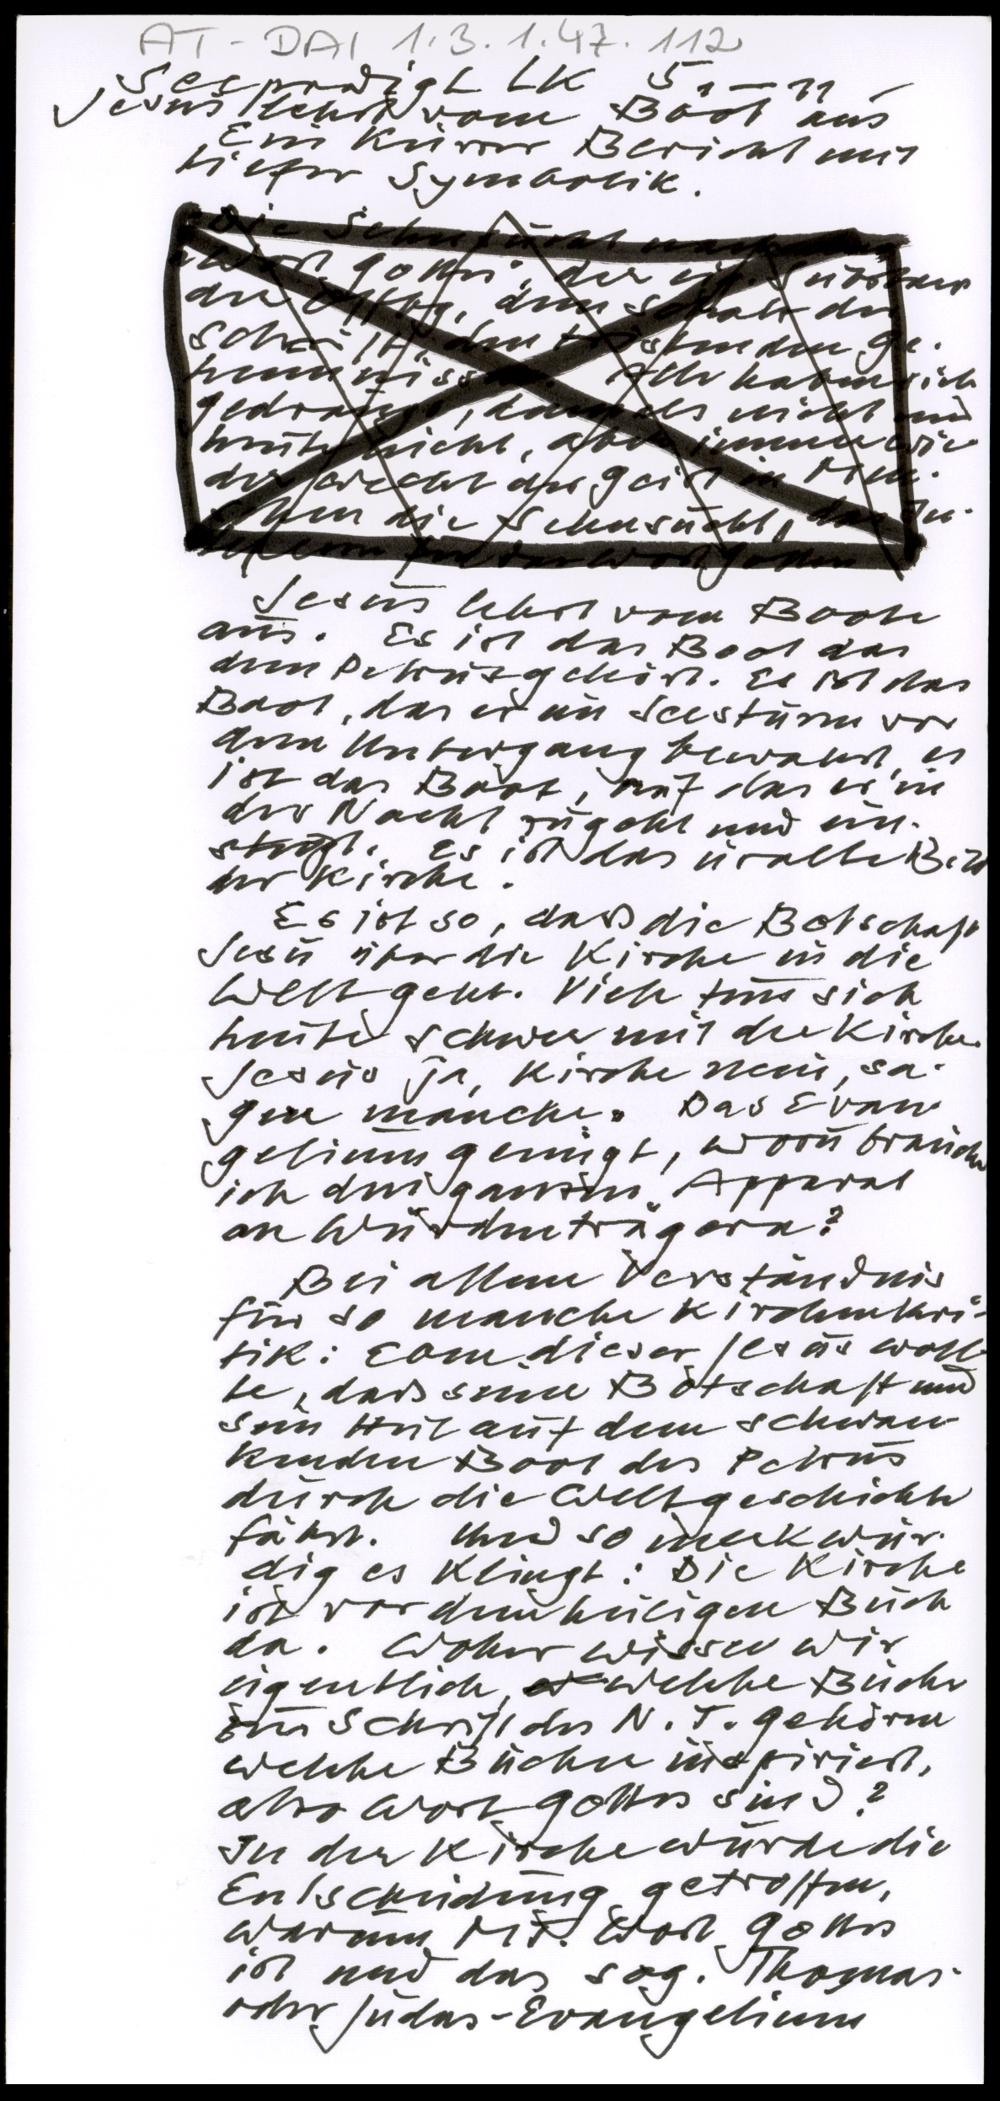 AT-DAI 1.3.1.47.112
Seepredigt LK 5,1-11
Jesus lehrt vom Boot aus
Ein kurzer Bericht mit
tiefer Symbolik.
Die Sehnsucht nach
Wort Gottes, der
der
schrift, den tröstenden Ge-
heimnissen. Alle haben sich
gedrängt, damals nicht und
heute nicht, aber immer wie-
der weckt der Geist in Men-
schen die Sehnsucht, das In-
Wort Gottes
Jesus lehrt vom Boote
aus. Es ist das Boot das
dem Petrus gehört. Es ist das
Boot, das er im Seesturm vor
dem Untergang bewahrt, es
ist das Boot, auf das er in
der Nacht zugeht und ein-
steigt. Es ist das uralte Bild
der Kirche.
Es ist so, daß die Botschaft
Jesu über die Kirche in die
Welt geht. Viele tun sich
heute schwer mit der Kirche.
Jesus ja, Kirche nein, sa-
gen manche. Das Evan-
gelium genügt, wozu brauche
ich den ganzen Apparat
an Würdenträgern?
Bei allem Verständnis
für so manche Kirchenkri-
tik: Eben dieser Jesus woll-
te, daß seine Botschaft und
sein Heil auf dem schwan-
kenden Boot des Petrus
durch die Weltgeschichte
fährt. Und so merkwür-
dig es klingt: Die Kirche
ist vor dem heiligen Buch
da. Woher wissen wir
eigentlich, welche Bücher
zur Schrift des N. T. gehören
welche Bücher inspiriert,
also Wort Gottes sind?
In der Kirche wurde die
Entscheidung getroffen,
warum Mt. Wort Gottes
ist und das sog. Thomas-
oder Judas-Evangelium